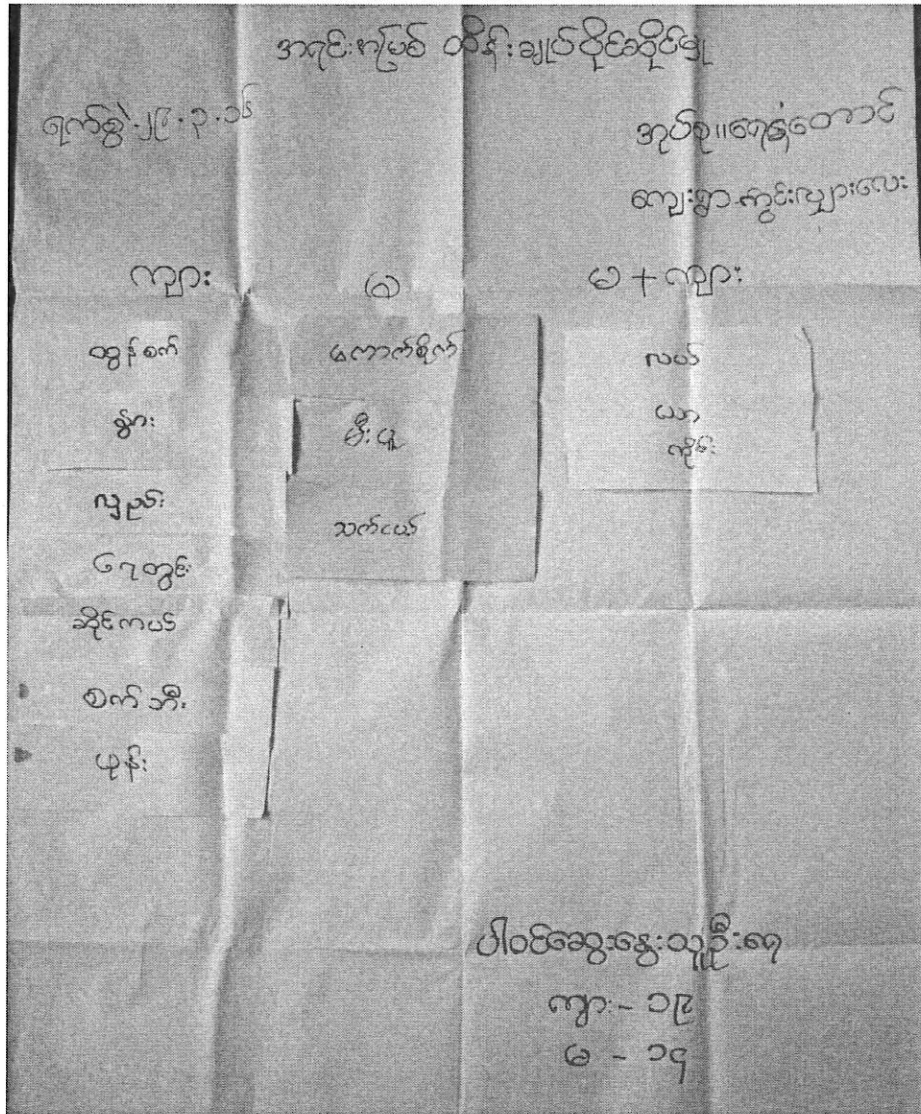 အရင်းအမြစ် ထိန်းချုပ်ပိုင်ဆိုင်မှု
ရက်စွဲ-၂၉.၃.၁၆
အုပ်စု။ရေနံတောင်
ကျေးရွာ-ကွင်းလျှားလေး
ကျား
မ
မ + ကျား
ထွန်စက်
နွား
လှည်း
ရေတွင်း
ဆိုင်ကယ်
စက်ဘီး
ဖုန်း
ကောက်စိုက်
မီးပူ
သက်ငယ်
လယ်
ယာ
ကိုင်း
ပါဝင်ဆွေးနွေးသူဦးရေ
ကျား - ၁၉
မ - ၁၄